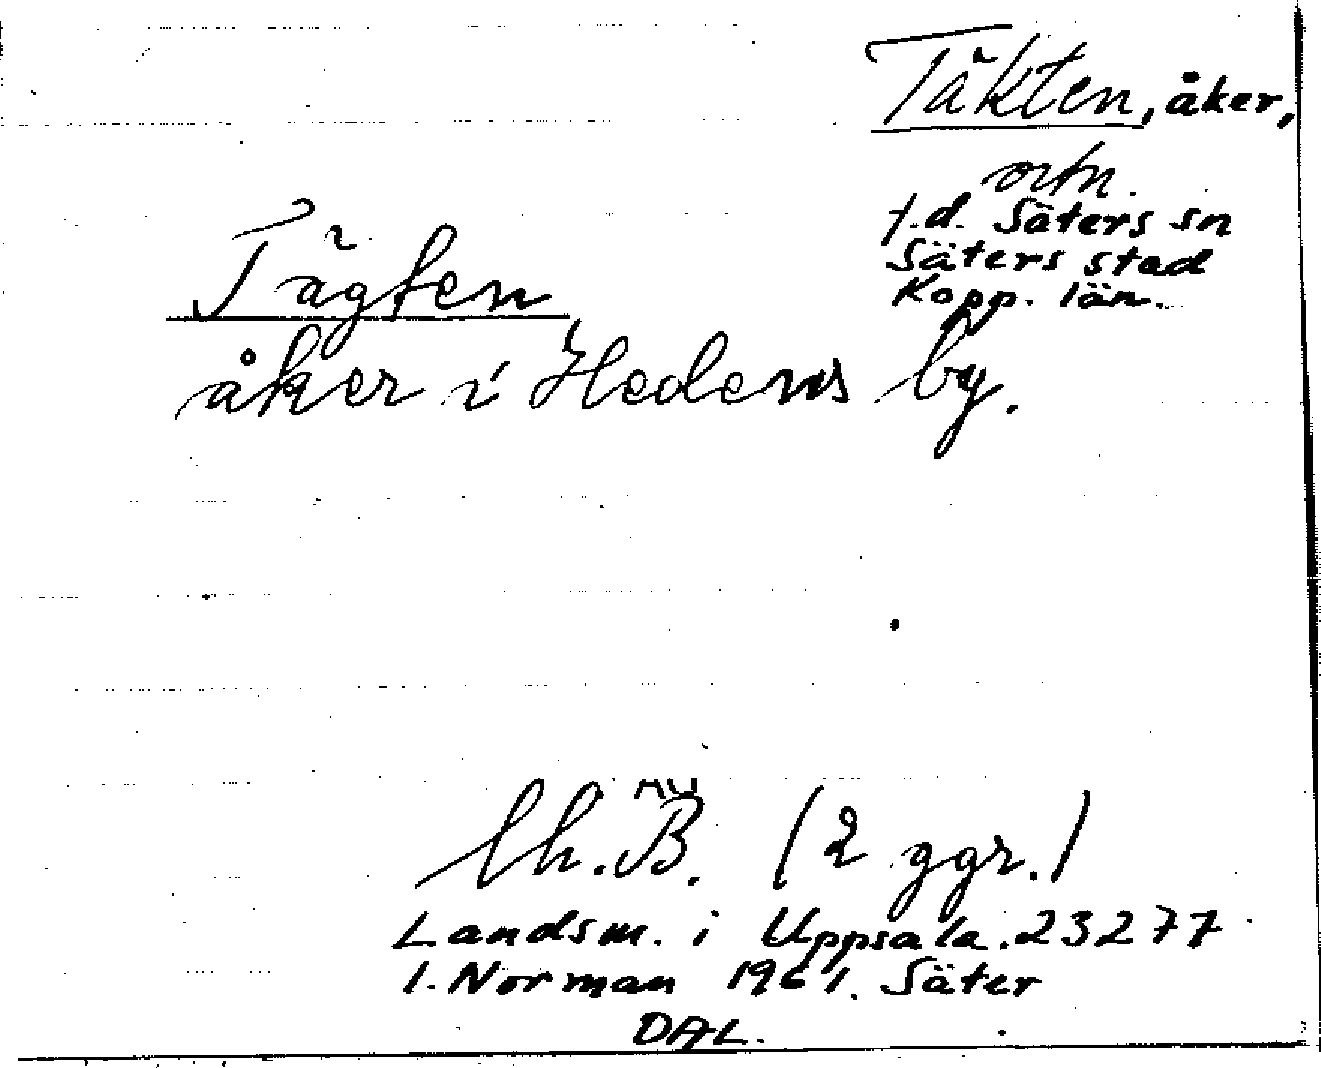 Täkten, åker,
ortn.
f.d. Säters sn
Säters stad
Kopp. län.
Tägten
åker i Hedens by.
lh. B. (2 ggr.)
Landsm. i Uppsala. 23277
I. Norman 1961. Säter
DAL.